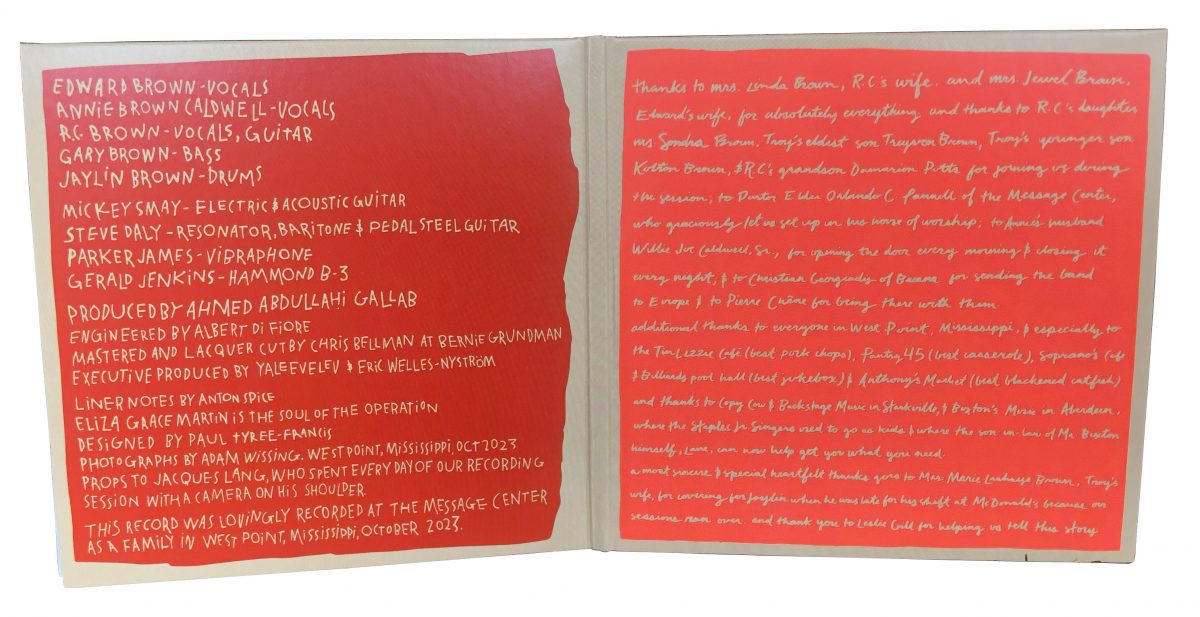 EDWARD BROWN-VOCALS
ANNIE BROWN CALDWELL-VOCALS
R.C. BROWN-VOCALS, GUITAR
GARY BROWN-BASS
JAYLIN BROWN-DRUMS
MICKEY SMAY-ELECTRIC & ACOUSTIC GUITAR
STEVE DALY-RESONATOR, BARITONE & PEDAL STEEL GUITAR
PARKER JAMES-VIBRAPHONE
GERALD JENKINS-HAMMOND B-3
PRODUCED BY AHMED ABDULLAHI GALLAB
ENGINEERED BY ALBERT DI FIORE
MASTERED AND LACQUER CUT BY CHRIS BELLMAN AT BERNIE GRUNDMAN
EXECUTIVE PRODUCED BY YALE EVELEV & ERIC WELLES-NYSTRÖM
LINER NOTES BY ANTON SPICE
ELIZA GRACE MARTIN IS THE SOUL OF THE OPERATION
DESIGNED BY PAUL TYREE-FRANCIS
PHOTOGRAPHS BY ADAM WISSING. WEST POINT, MISSISSIPPI, OCT 2023
PROPS TO JACQUES LANG, WHO SPENT EVERY DAY OF OUR RECORDING
SESSION WITH A CAMERA ON HIS SHOULDER
THIS RECORD WAS LOVINGLY RECORDED AT THE MESSAGE CENTER
AS A FAMILY IN WEST POINT, MISSISSIPPI, OCTOBER 2023.
thanks to mrs. Linda Brown, R.C's wife. and mrs. Jewel Brown,
Edward's wife, for absolutely everything and thanks to R.C's daughter
ms. Sondra Brown, Troy's eldest son Treyvon Brown, Troy's younger son
Kolton Brown, & R.C's grandson Damarion Pitts for joining us during
the session; to Elder Orlando C. Pannell of the Message Center,
who graciously let us set up in his house of worship; to Annie's husband
Willie Joe Caldwell, Sr., for opening the door every morning & closing it
every night, & to Christian of for sending the band
to Europe & to Pierre Chêne for being there with them.
additional thanks to everyone in West Point, Mississippi, & especially to
the Tin Lizzie Café (best pork chops), Pantry 45 (best casserole), Soprano's Cafe
& Billiards pool hall (best jukebox) & Anthony's Market (best blackened catfish)
and thanks to Copy Cow & Backstage Music in Starkville, & Buxton's Music in Aberdeen,
where the Staples Jr. Singers used to go as kids & where the son-in-law of Mr. Buxton
himself, Lane, can now help get you what you need.
a most sincere & special heartfelt thanks goes to Mrs. Marie Brown, Troy's
wife, for covering for Jaylin when he was late for his shift at McDonald's because our
sessions ran over. and thank you to Leslie Gill for helping us tell this story